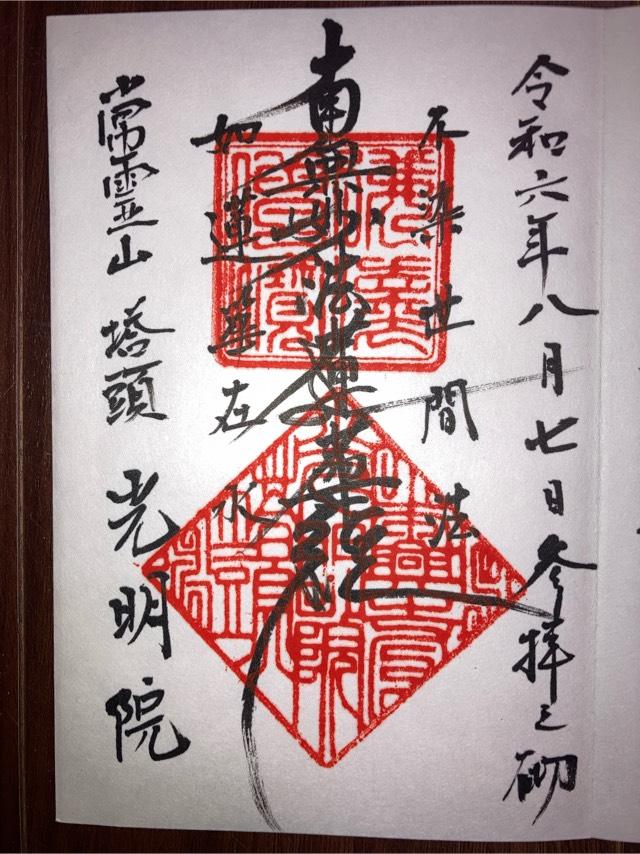 令和六年八月七日参拝之砌
不染世間法
南無妙法蓮華経
如蓮華在水
常霊山 塔頭 光明院